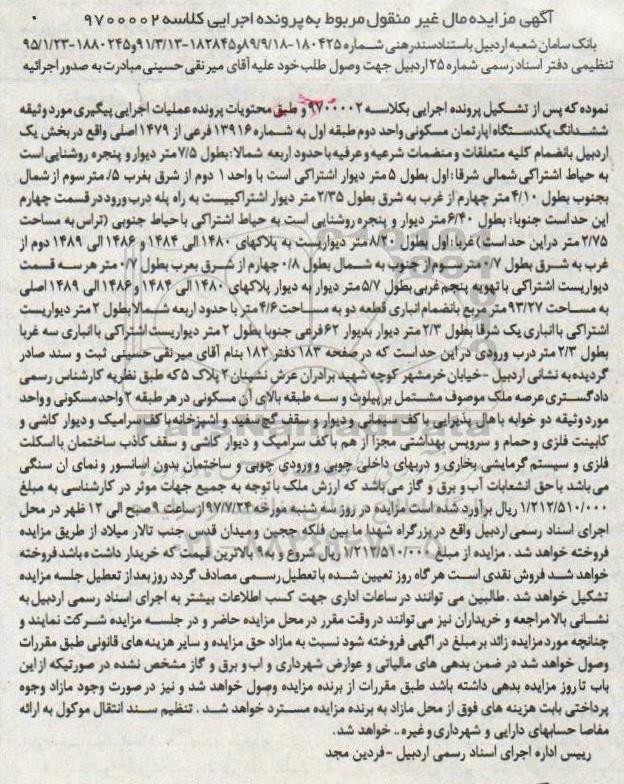 آگهی مزایده مال غیر منقول مربوط به پرونده اجرایی کلاسه ۹۷۰۰۰۰۲
بانک سامان شعبه اردبیل باستناد سند رهنی شماره ۱۸۰۴۲۵-۸۹/۹/۱۸و۱۸۲۸۴۵-۹۱/۳/۱۳و۱۸۸۰۲۴۵-۹۵/۱/۲۳
تنظیمی دفتر اسناد رسمی شماره ۲۵ اردبیل جهت وصول طلب خود علیه آقای میر نقی حسینی مبادرت به صدور اجرائیه
نموده که پس از تشکیل پرونده اجرایی بکلاسه ۹۷۰۰۰۰۲ و طبق محتویات پرونده عملیات اجرایی پیگیری مورد وثیقه
ششدانگ یکدستگاه اپارتمان مسکونی واحد دوم طبقه اول به شماره ۱۳۹۱۶ فرعی از ۱۴۷۹ اصلی واقع در بخش یک
اردبیل بانضمام کلیه متعلقات و منضمات شرعیه و عرفیه با حدود اربعه شمالا: بطول ۷/۵ متر دیوار و پنجره روشنایی است
به حیاط اشتراکی شمالی شرقا: اول بطول ۵ متر دیوار اشتراکی است با واحد ۱ دوم از شرق بغرب ۵/. متر سوم از شمال
بجنوب بطول ۴/۱۰ متر چهارم از غرب به شرق بطول ۲/۳۵ متر دیوار اشتراکییست به راه پله درب ورود در قسمت چهارم
این حد است جنوبا: بطول ۶/۴۰ متر دیوار و پنجره روشنایی است به حیاط اشتراکی با حیاط جنوبی (تراس به مساحت
۲/۷۵ متر دراین حد است) غربا: اول بطول ۸/۲۰ متر دیواریست به پلاکهای ۱۴۸۰ الی ۱۴۸۴ و ۱۴۸۶ الی ۱۴۸۹ دوم از
غرب به شرق بطول ۰/۷ متر سوم از جنوب به شمال بطول ۰/۸ چهارم از شرق بعرب بطول ۰/۷ متر هر سه قسمت
دیواریست اشتراکی با تهویه پنجم غربی بطول ۵/۷ متر دیوار به دیوار پلاکهای ۱۴۸۰ الی ۱۴۸۴ و ۱۴۸۶ الی ۱۴۸۹ اصلی
به مساحت ۹۳/۲۷ متر مربع بانضمام انباری قطعه دو به مساحت ۴/۶ متر با حدود اربعه شمالا بطول ۲ متر دیواریست
اشتراکی با انباری یک شرقا بطول ۲/۳ متر دیوار بدیوار ۶۲ فرعی جنوبا بطول ۲ متر دیواریست اشتراکی با انباری سه غربا
بطول ۲/۳ متر درب ورودی در این حد است که در صفحه ۱۸۳ دفتر ۱۸۲ بنام آقای میر نقی حسینی ثبت و سند صادر
گردیده به نشانی اردبیل - خیابان خرمشهر کوچه شهید برادران عرش نشینان ۲ پلاک ۵ که طبق نظریه کارشناس رسمی
دادگستری عرصه ملک موصوف مشتمل بر پیلوت و سه طبقه بالای آن مسکونی در هر طبقه ۲ واحد مسکونی و واحد
مورد وثیقه دو خوابه با هال پذیرایی با کف سیمانی و دیوار و سقف گچ سفید و اشپزخانه با کف سرامیک و دیوار کاشی و
کابینت فلزی و حمام و سرویس بهداشتی مجزا از هم با کف سرامیک و دیوار کاشی و سقف کاذب ساختمان با اسکلت
فلزی و سیستم گرمایشی بخاری و دربهای داخلی چوبی و ورودی چوبی و ساختمان بدون اسانسور و نمای ان سنگی
می باشد با حق انشعابات آب و برق و گاز می باشد که ارزش ملک با توجه به جمیع جهات موثر در کارشناسی به مبلغ
۱/۲۱۲/۵۱۰/۰۰۰ ریال برآورد شده است مزایده در روز سه شنبه مورخه ۹۷/۷/۲۴ از ساعت ۹ صبح الی ۱۲ ظهر در محل
اجرای اسناد رسمی اردبیل واقع در بزرگراه شهدا ما بین فلکه ججین و میدان قدس جنب تالار میلاد از طریق مزایده
فروخته خواهد شد . مزایده از مبلغ ۱/۲۱۲/۵۱۰/۰۰۰ ریال شروع و به۹ بالاترین قیمت که خریدار داشته باشد فروخته
خواهد شد فروش نقدی است هر گاه روز تعیین شده با تعطیل رسمی مصادف گردد روز بعد از تعطیل جلسه مزایده
تشکیل خواهد شد .طالبین می توانند در ساعات اداری جهت کسب اطلاعات بیشتر به اجرای اسناد رسمی اردبیل به
نشانی بالا مراجعه و خریداران نیز می توانند در وقت مقرر در محل مزایده حاضر و در جلسه مزایده شرکت نمایند و
چنانچه مورد مزایده زائد بر مبلغ در اگهی فروخته شود نسبت به مازاد حق مزایده و سایر هزینه های قانونی طبق مقررات
وصول خواهد شد در ضمن بدهی های مالیاتی و عوارض شهرداری و اب و برق و گاز مشخص نشده در صورتیکه از این
باب تا روز مزایده بدهی داشته باشد طبق مقررات از برنده مزایده وصول خواهد شد و نیز در صورت وجود مازاد وجوه
پرداختی بابت هزینه های فوق از محل مازاد به برنده مزایده مسترد خواهد شد . تنظیم سند انتقال موکول به ارائه
مفاصا حسابهای دارایی و شهرداری و غیره.. خواهد شد.
رییس اداره اجرای اسناد رسمی اردبیل -فردین مجد